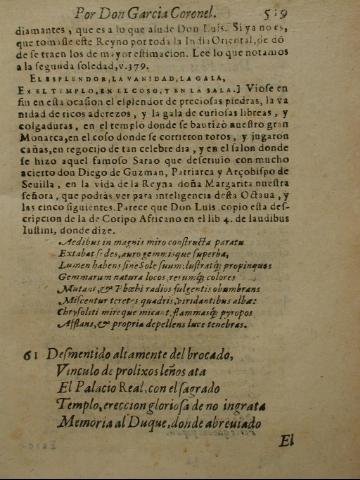 Por Don Garcia Coronel. 519
diamantes, que es a lo que alude Don Luis. Si ya no es,
que tomasse este Reyno por toda la India Oriental, de dõ
de se traen los de mayor estimacion. Lee lo que notamos
a la segunda soledad, v.379.
EL ESPLENDOR, LA VANIDAD, LA GALA,
EN EL TEMPLO, EN EL COSO, Y EN LA SALA.] Viose en
fin en esta ocasion el esplendor de preciosas piedras, la va
nidad de ricos aderezos, y la gala de curiosas libreas, y
colgaduras, en el templo donde se bautizò nuestro gran
Monarca, en el coso donde se corrieron toros, y jugaron
cañas, en regocijo de tan celebre dia, y en el salon donde
se hizo aquel famoso Sarao que descriuio con mucho
acierto don Diego de Guzman, Patriarca y Arçobispo de
Seuilla, en la vida de la Reyna doña Margarita nuestra
señora, que podràs ver para inteligencia desta Octaua, y
las cinco siguientes. Parece que Don Luis copio esta des-
cripcion de la de Coripo Africano en el lib. 4. de laudibus
Iustini, donde dize.
Aedibus in magnis miro constructa paratu
Extabat sedes, auro gemmisque superba,
Lumen habens sine Sole suum: lustratq; propinquos
Gemmarum natura locos, rerumq; colores
Mutant, & Phœbi radios fulgentis obumbrans
Miscentur teretes quadris, viridantibus albæ:
Chrysoliti mireque micant, flammasq; pyropos
Afflans, & propria depellens luce tenebras.
61 Desmentido altamente del brocado,
Vinculo de prolixos leños ata
El Palacio Real, con el sagrado
Templo, ereccion gloriosa de no ingrata
Memoria al Duque, donde abreuiado
El